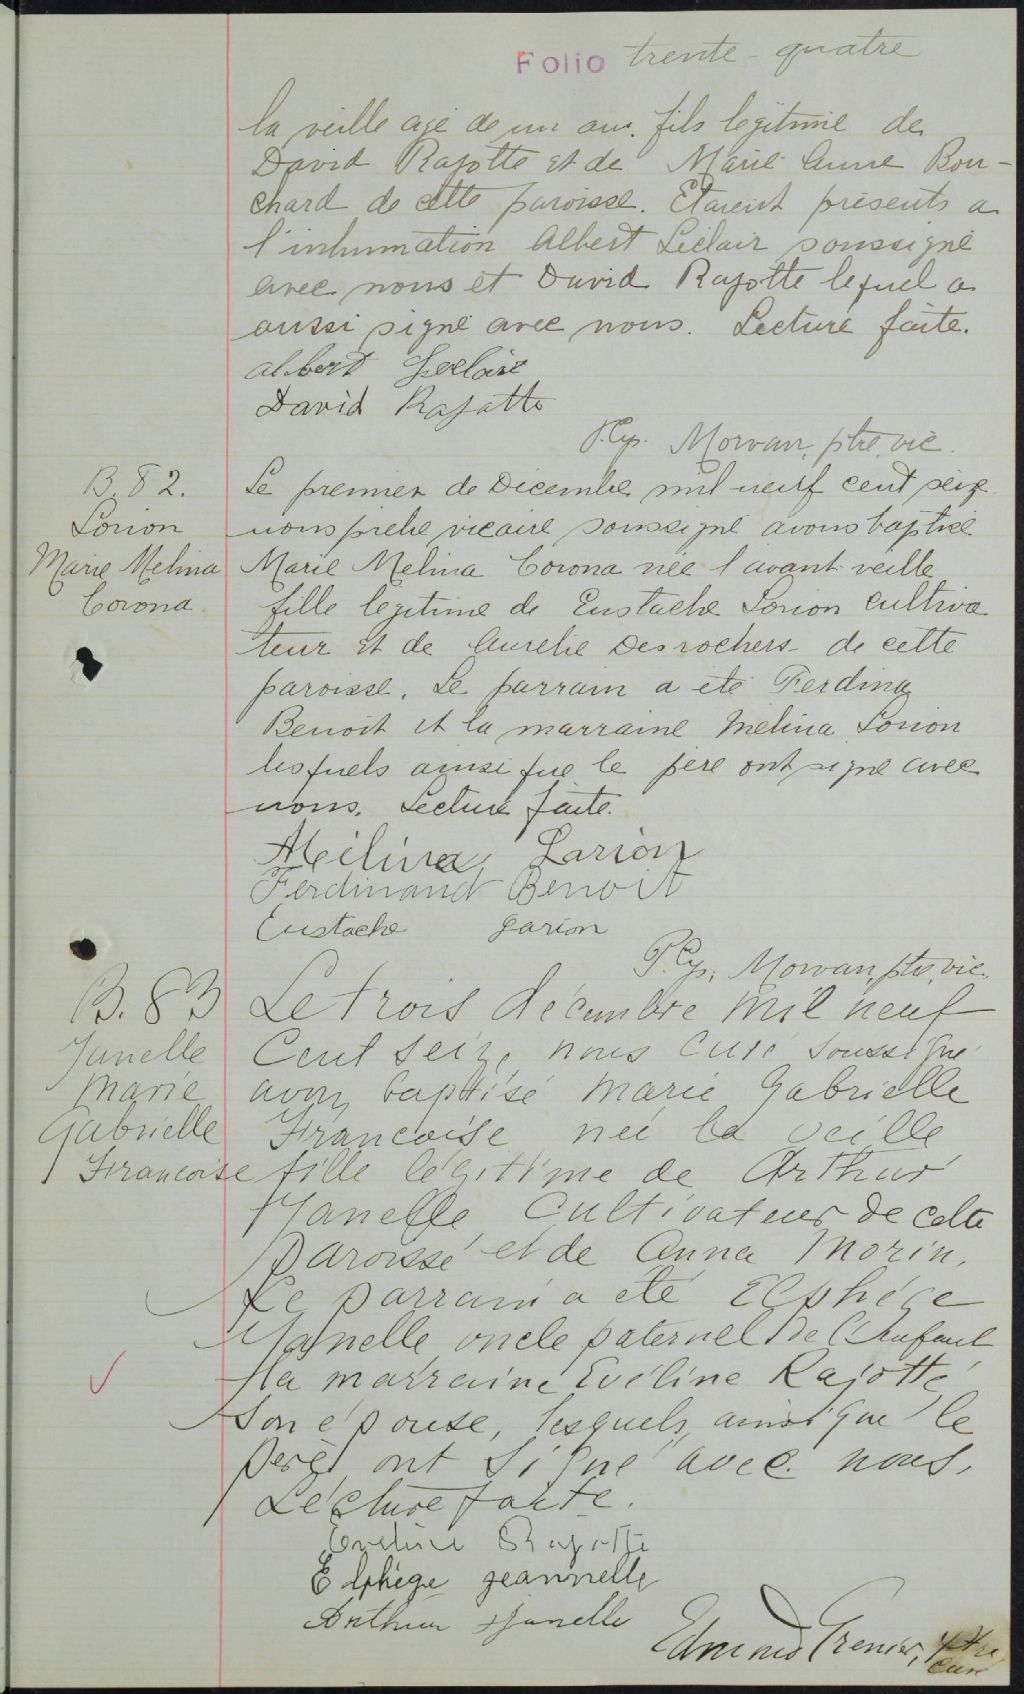 Folio trente-quatre
la veille agé de un an. fils legitime de
David Rajotte et de Marie Anne Bou-
chard de cette paroisse. Etaient présents a
l'inhumation Albert Leclair soussigné
avec nous et David Rajotte lequel a
aussi signé avec nous. Lecture faite.
Albert Leclair
David Rajotte
P. Cyp. Morvan, ptre vic.
B. 82.
Lorion
Marie Melina
Corona
Le premier de Décembre mil neuf cent seize
nous prêtre vicaire soussigné avons baptisé
Marie Melina Corona née l'avant-veille
fille légitime de Eustache Lorion cultiva
teur et de Aurelie Desrochers de cette
paroisse. Le parrain a été Ferdina
Benoit et la marraine Mélina Lorion
lesquels ainsi que le père ont signé avec
nous. Lecture faite.
Mélina Larion
Ferdinand Benoit
Eustache Larion
P. Cyp. Morvan, ptre vic.
B. 83
Janelle
Marie
Gabrielle
Francoise
Le trois décembre mil neuf
Cent seize nous curé soussigné
avons baptisé Marie Gabrielle
Francoise née la veille
fille légitime de Arthur
Janelle Cultivateur de cette
paroisse et de Anna Morin.
Le parrain a été Elphége
Janelle oncle paternel de l'Enfant
la marraine Evéline Rajotte
son épouse, lesquels, ainsi que le
père, ont signé avec nous.
Lecture faite.
Eveline Rajotte
Elphége Jeannelle
Arthur Janelle
Edmond Grenier, ptre
curé